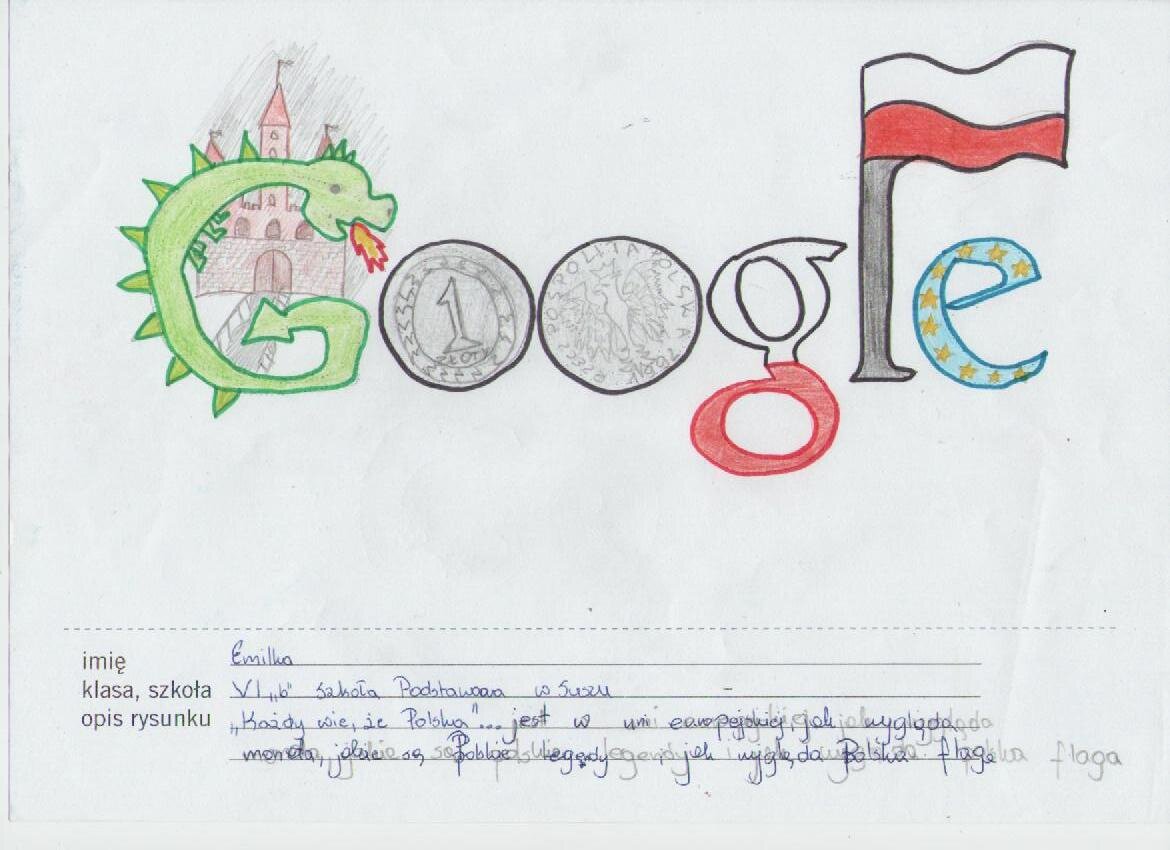 Google
1
ZŁOTY
RZECZPOSPOLITA POLSKA
imię Emilka
klasa, szkoła VI „b" szkoła Podstawowa w Suszu -
opis rysunku „Każdy wie, że Polska"... jest w uni europejskiej, jak wygląda
moneta, jakie są Polskie legędy i jak wygląda Polska flaga